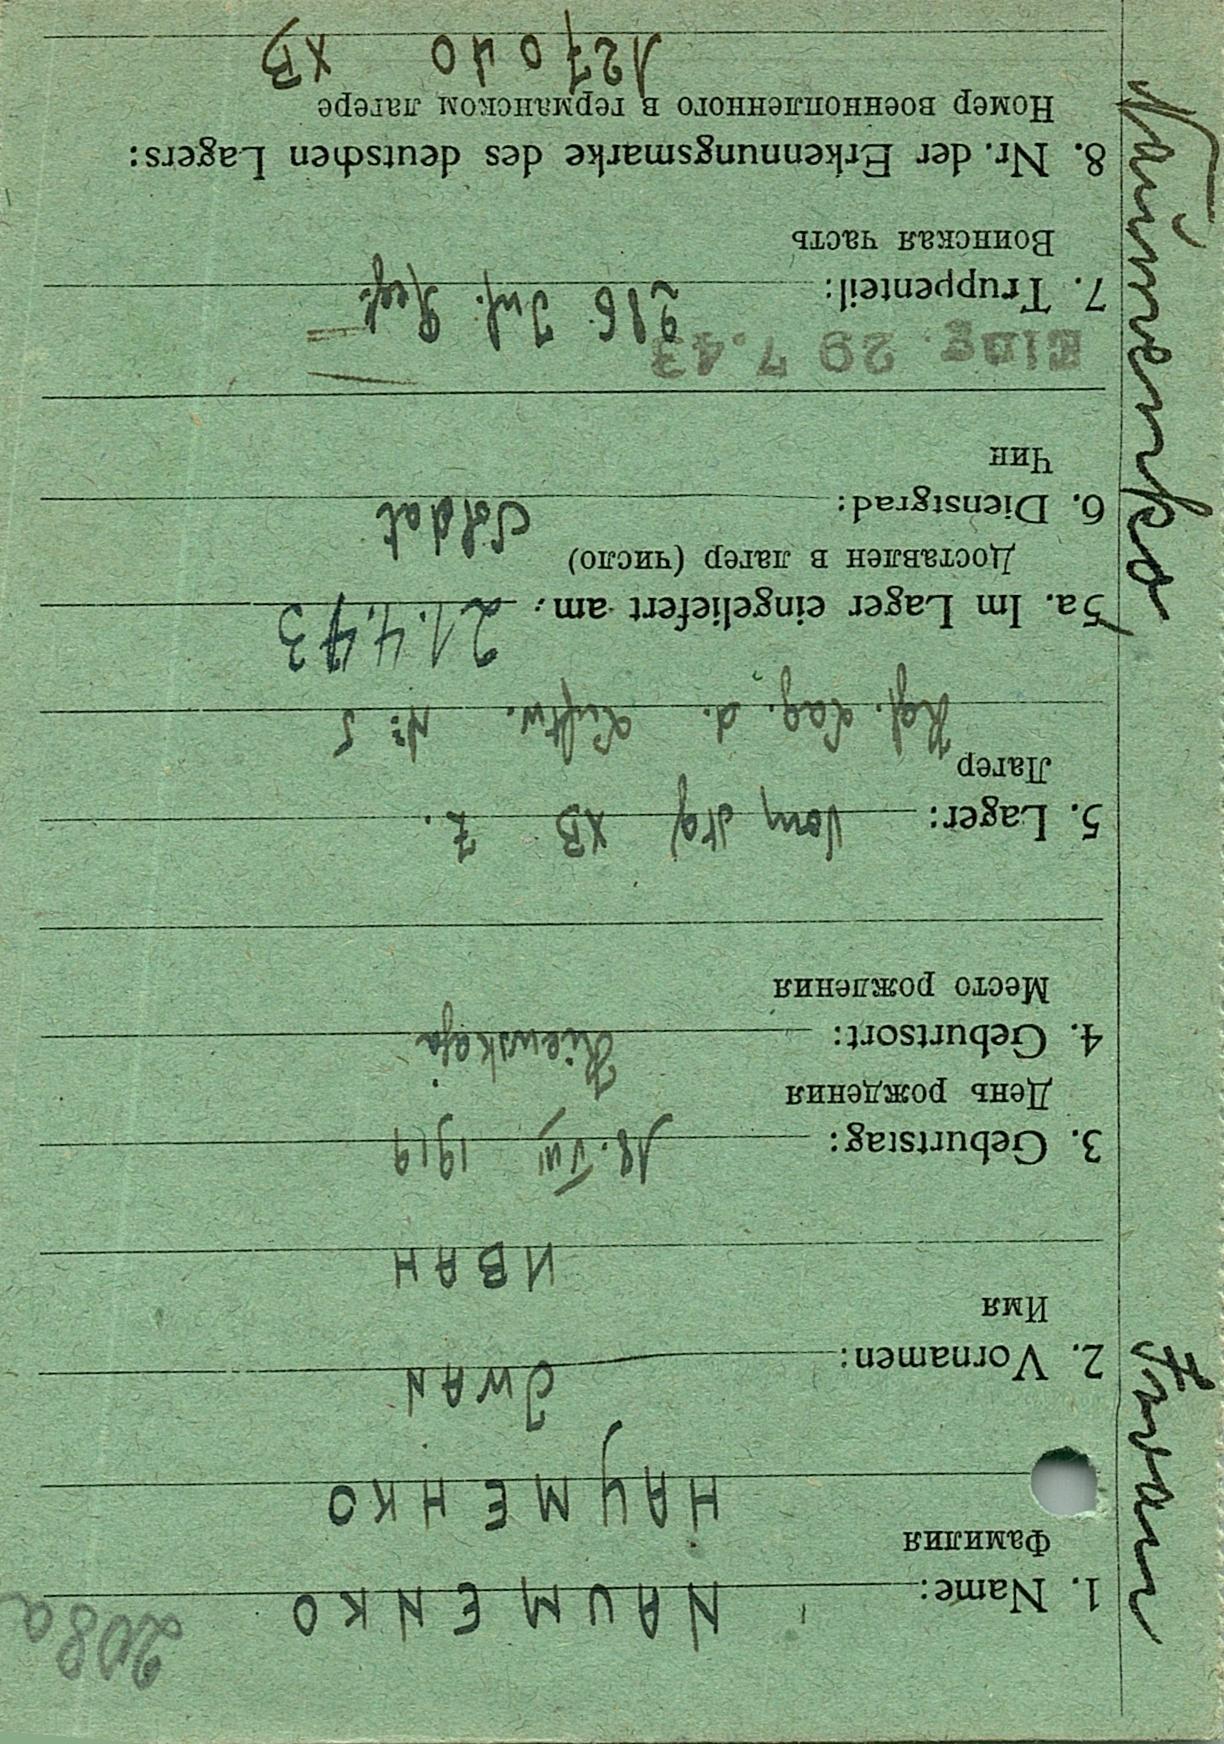 208a
1. Name: NAUMENKO
Фамилия
НАУМЕНКО
2. Vornamen: IWAN
Имя
ИВАН
3. Geburtstag: 18. VIII 1919
День рождения
4. Geburtsort: Kiewskaja
Место рождения
5. Lager: Vom XB z.
Лагер
Kgf. Lag. d. Luftw. № 5
5a. Im Lager eingeliefert am: 21.4.43
Доставлен в лагер (число)
6. Dienstgrad: Soldat
Чин
Eing. 29 7.43
7. Truppenteil: 286 Inf. Reg.
Воинская часть
8. Nr. der Erkennungsmarke des deutschen Lagers:
Номер военнопленного в германском лагере
127040 XB
Naumenko Iwan